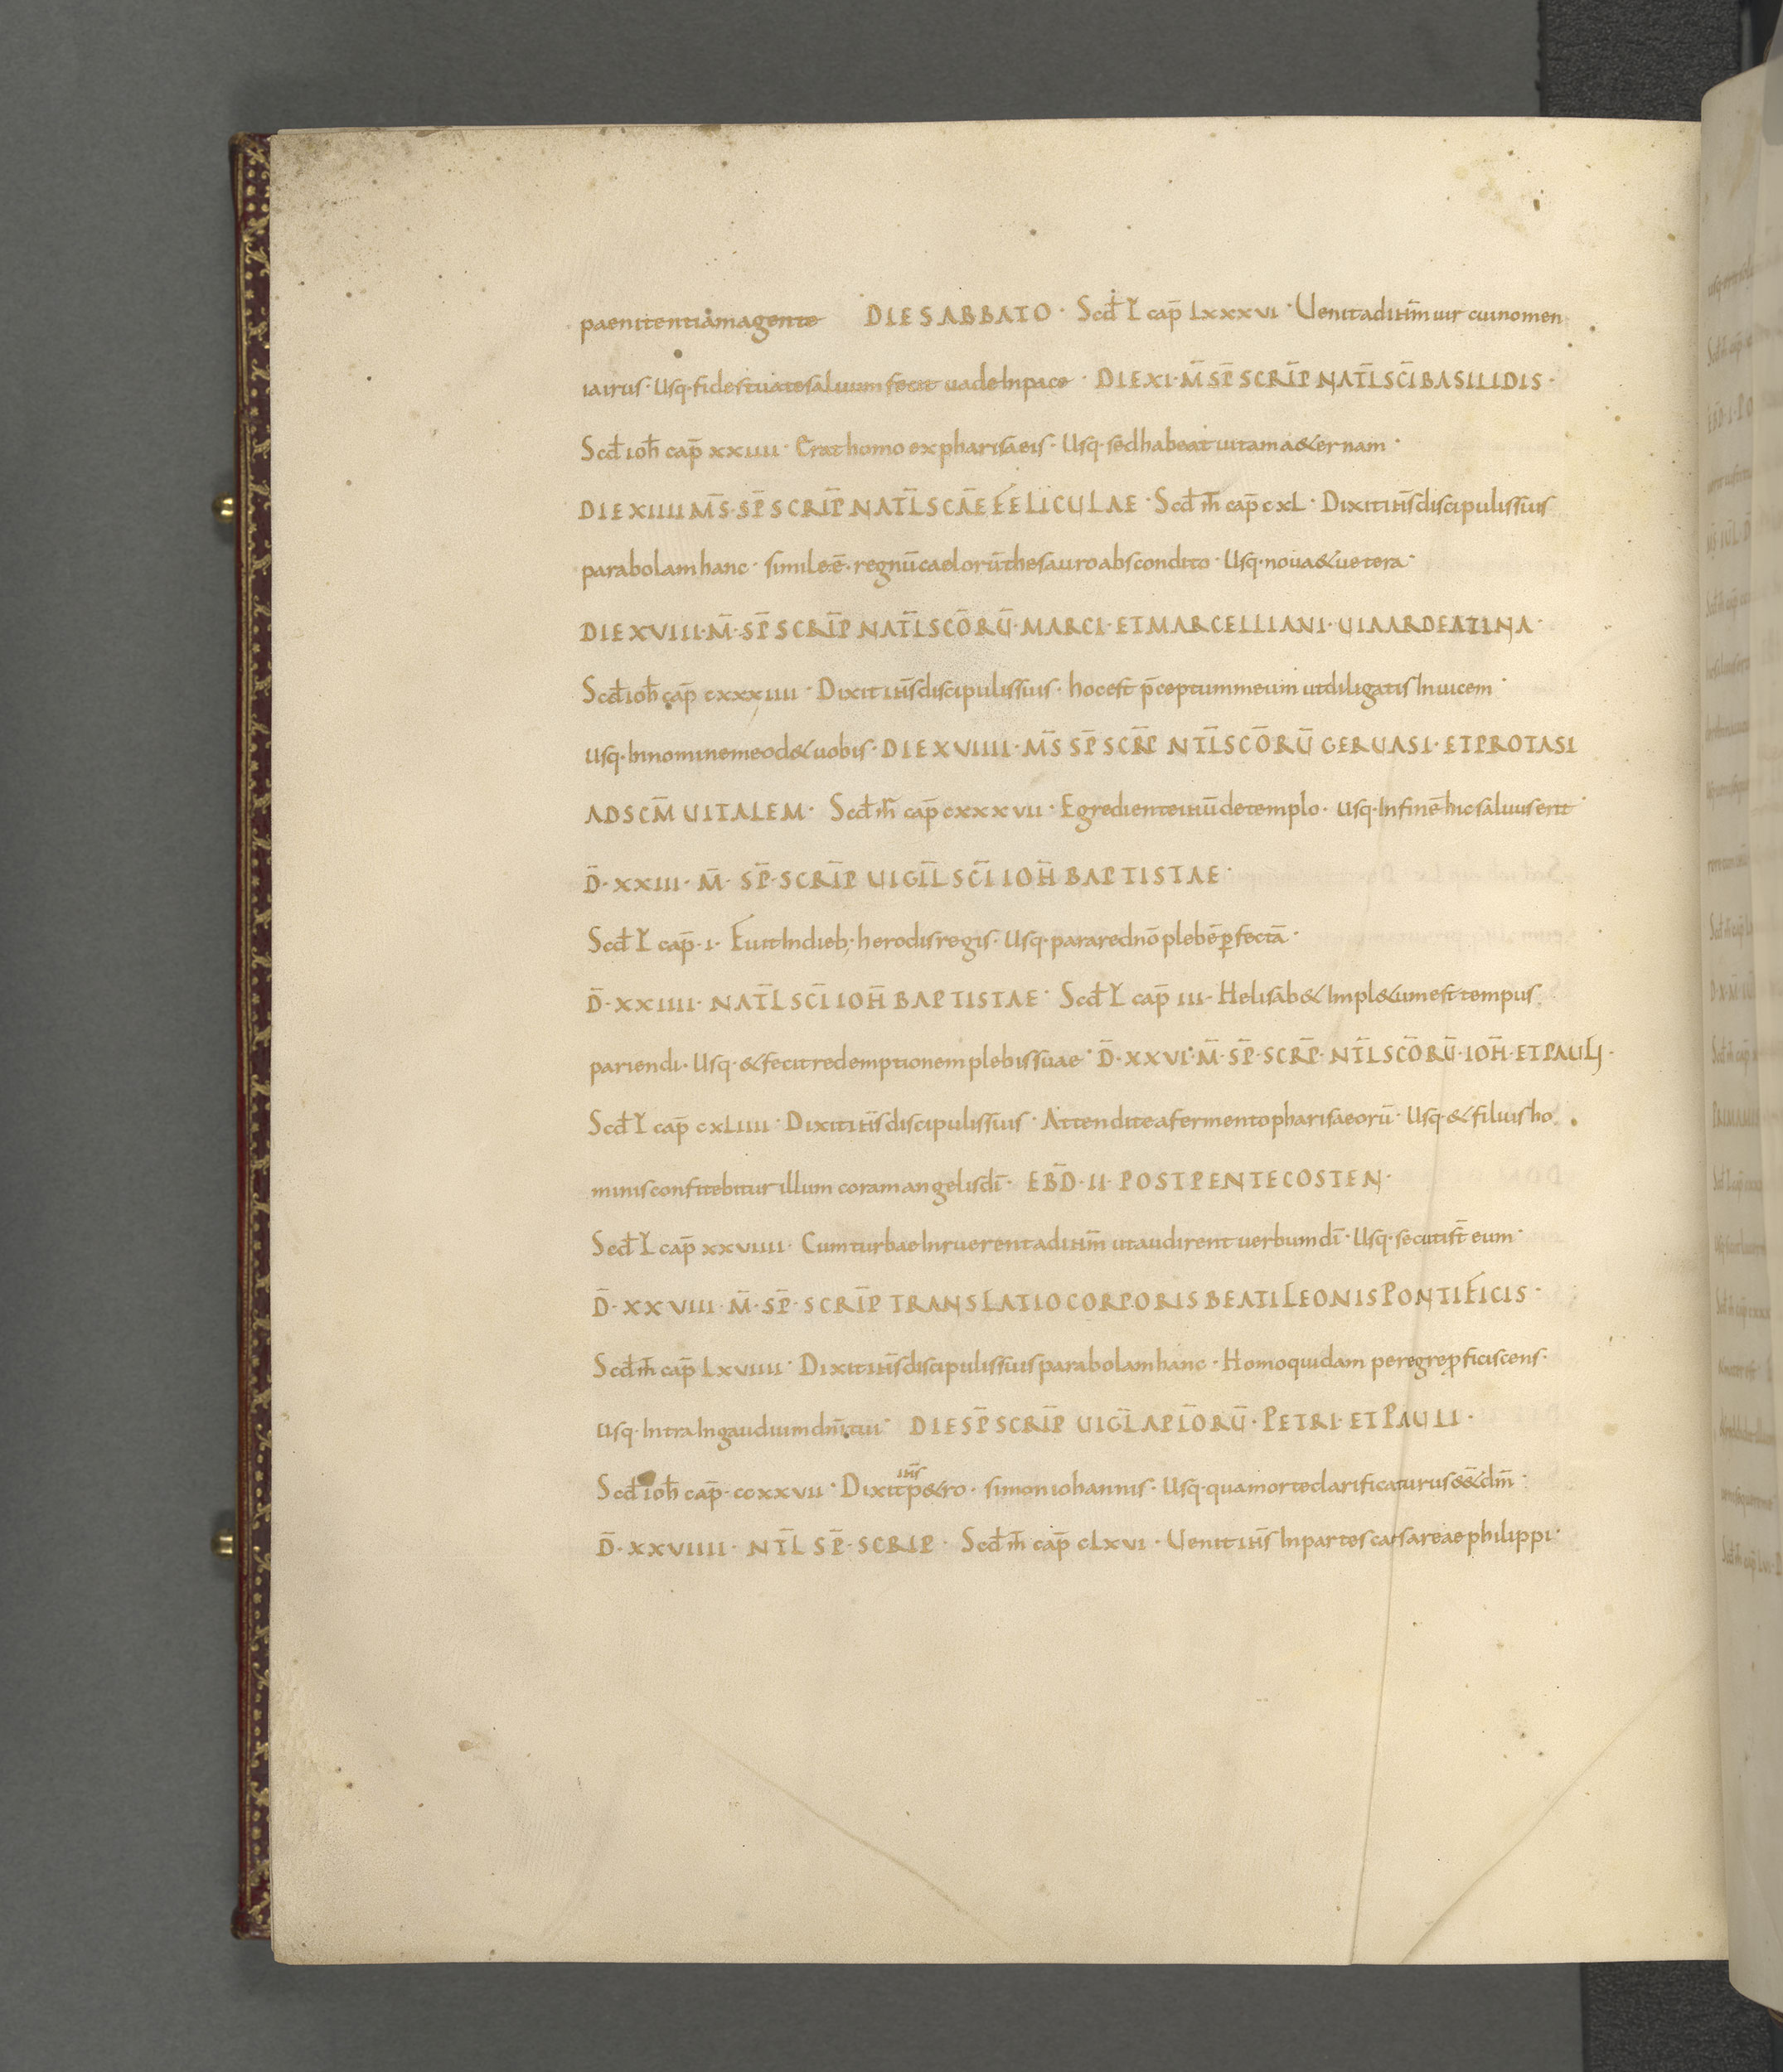 paenitentiam agente DIE SABBATO · Scd̄ L cap̄ Lxxxvi · Uenit ad ih̄m uir cui nomen
iairus · Usq· fides tua te saluum fecit uade In pace · DIE XI · M̄ SP̄ SCRIP̄ NATL̄ SCI̅ BASILIDIS ·
Scd̄ ioh̄ cap̄ xxiiii · Erat homo ex pharisaeis · Usq· sed habeat uitam a&ernam ·
DIE XIIII M̄S · SP̄ SCRIP̄ NATL̄ SCAE̅ FELICULAE · Scd̄ m̄ cap̄ cxL · Dixit ih̄s discipulis suis
parabolam hanc · simile ē · regnū caelorū thesauro abscondito · Usq· noua & uetera ·
DIE XVIII · M̄ · SP̄ SCRIP̄ NATL̄ SCO̅RŪ · MARCI · ET MARCELLIANI · UIA ARDEATINA ·
Scd̄ ioh̄ cap̄ cxxxiiii · Dixit ih̄s discipulis suis · hoc est p̄ceptum meum ut diligatis Inuicem ·
Usq· In nomine meo d& uobis · DIE XVIIII · M̄S SP̄ SCRP̄ NTL̄ SCO̅RŪ GERUASI · ET PROTASI
AD SCM̄ UITALEM · Scd̄ m̄ cap̄ cxxxvii · Egrediente ihū de templo · Usq· In finē hic saluus erit ·
D̄ · XXIII · M̄ · SP̄ · SCRIP̄ UIGIL̄ SCI̅ IOH̄ BAPTISTAE ·
Scd̄ L cap̄ · i · Fuit In dieb; herodis regis · Usq· parare dnō plebē ꝑfectā ·
D̄ · XXIIII · NATL̄ SCI̅ IOH̄ BAPTISTAE · Scd̄ L cap̄ iii · Helisab& Impl&um est tempus
pariendi · Usq· & fecit redemptionem plebis suae · D̄ · XXVI · M̄ · SP̄ · SCRP̄ · NTL̄ SCO̅RŪ · IOH̄ · ET PAULI ·
Scd̄ L cap̄ cxLiiii · Dixit ih̄s discipulis suis · Attendite a fermento pharisaeorū · Usq· & filius ho
minis confitebitur illum coram angelis dī · EBD̄ · II · POST PENTECOSTEN ·
Scd̄ L cap̄ xxviiii · Cum turbae Inruerent ad ih̄m ut audirent uerbum dī · Usq· secuti st̄ eum ·
D̄ · XXVIII · M̄ · SP̄ · SCRIP̄ TRANSLATIO CORPORIS BEATI LEONIS PONTIFICIS ·
Scd̄ m̄ cap̄ Lxviiii · Dixit ih̄s discipulis suis parabolam hanc · Homo quidam peregre ꝓficiscens ·
Usq· Intra In gaudium dn̄i tui · DIE SP̄ SCRIP̄ UIGL̄ APL̄ORŪ · PETRI · ET PAULI ·
Scd̄ ioh̄ cap̄ · ccxxvii · Dixit ih̄s p&ro · simon iohannis · Usq· qua morte clarificaturus ess& dm̄ ·
D̄ · XXVIIII · NTL̄ SP̄ · SCRIP · Scd̄ m̄ cap̄ cLxvi · Uenit ih̄s In partes caesareae philippi ·